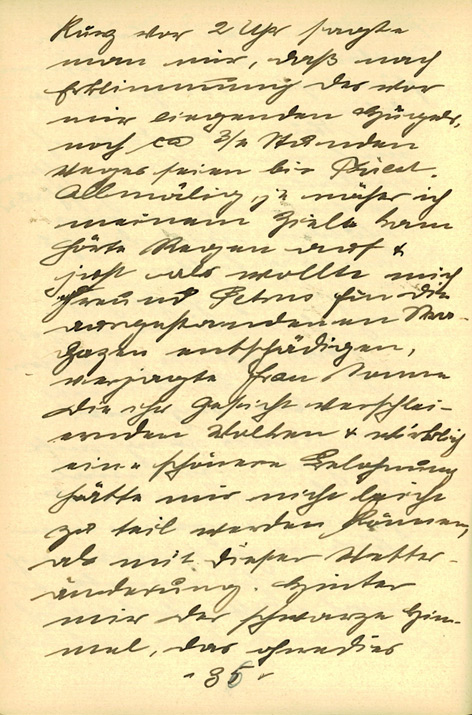 Kurz vor 2 Uhr sagte
man mir, daß nach
Erklimmung des vor
mir liegenden Hügels,
noch ca 3/4 Stunden
Weges seien bis
Allmälig, je näher ich
meinem Ziele kam
hörte Regen auf &
just als wollte mich
Freund Petrus für die
ausgestandenen Stra-
pazen entschädigen,
verjagte Frau Sonne
die ihr Gesicht verschlei-
ernden Wolken & wirklich
eine schönere Belohnung
hätte mir nicht leicht
zu teil werden können,
als mit dieser Wetter-
änderung. Hinter
mir der schwarze Him-
mel, das ohnedies